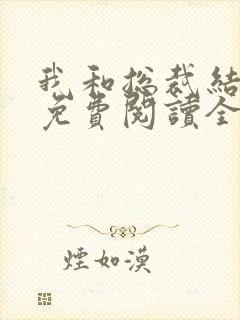 我和总裁结
免費閱讀全
煙如漠